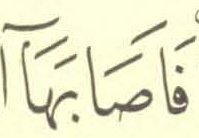 فَاَصَابَهَآ